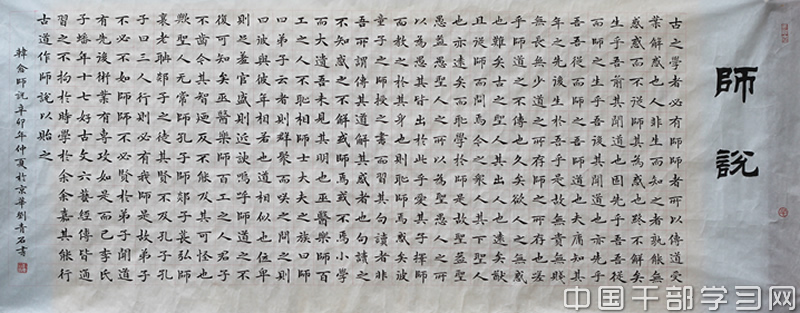 師說
古之學者必有師師者所以傳道受
業解惑也人非生而知之者孰能無
惑惑而不從師其為惑也終不解矣
生乎吾前其聞道也固先乎吾吾從
而師之生乎吾後其聞道也亦先乎
吾吾從而師之吾師道也夫庸知其
年之先後生於吾乎是故無貴無賤
無長無少道之所存師之所存也嗟
乎師道之不傳也久矣欲人之無惑
也難矣古之聖人其出人也遠矣猶
且從師而問焉今之眾人其下聖人
也亦遠矣而恥學於師是故聖益聖
愚益愚聖人之所以為聖愚人之所
以為愚其皆出於此乎愛其子擇師
而教之於其身也則恥師焉惑矣彼
童子之師授之書而習其句讀者非
吾所謂傳其道解其惑者也句讀之
不知惑之不解或師焉或不焉小學
而大遺吾未見其明也巫醫樂師百
工之人不恥相師士大夫之族曰師
曰弟子云者則群聚而笑之問之則
曰彼與彼年相若也道相似也位卑
則足羞官盛則近諛嗚呼師道之不
復可知矣巫醫樂師百工之人君子
不齒今其智乃反不能及其可怪也
歟聖人無常師孔子師郯子萇弘師
襄老聃郯子之徒其賢不及孔子孔
子曰三人行則必有我師是故弟子
不必不如師師不必賢於弟子聞道
有先後術業有專攻如是而已李氏
子蟠年十七好古文六藝經傳皆通
習之不拘於時學於余余嘉其能行
古道作師說以貽之
韓愈師說辛卯年仲夏於京華劉青石書
中国干部学习网